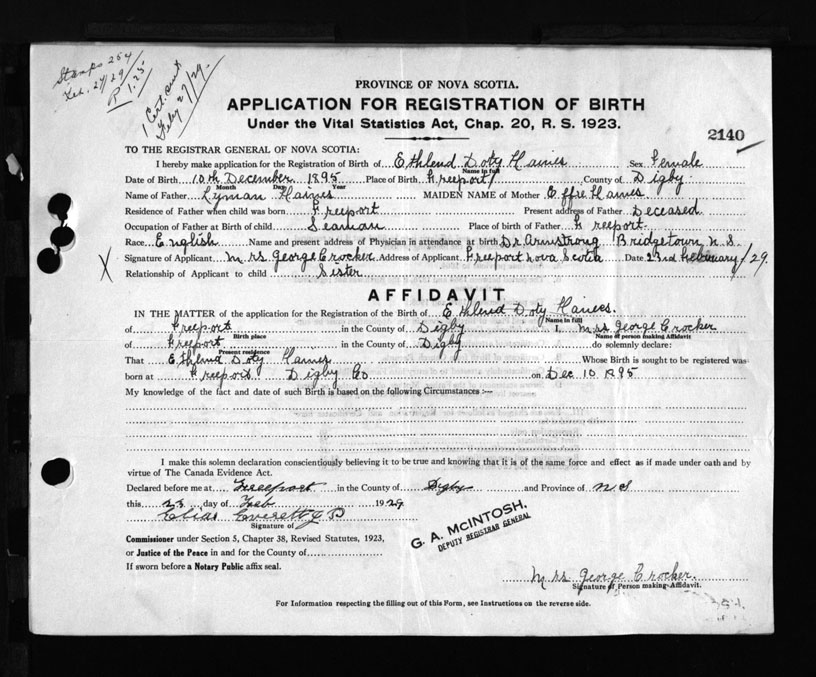 Stamps 25¢
Feb. 27/29
P 1.25
1 Cert. sent
Feby 27/29.
PROVINCE OF NOVA SCOTIA.
APPLICATION FOR REGISTRATION OF BIRTH
Under the Vital Statistics Act, Chap. 20, R. S. 1923.
2140
TO THE REGISTRAR GENERAL OF NOVA SCOTIA:
I hereby make application for the Registration of Birth of Ethlend Doty Haines Sex Female
Name in full
Date of Birth 10th December 1895 Place of Birth Freeport County of Digby
Month Day Year
Name of Father Lyman Haines MAIDEN NAME of Mother Effie Haines
Residence of Father when child was born Freeport Present address of Father Deceased
Occupation of Father at Birth of child Seaman Place of birth of Father Freeport.
Race English Name and present address of Physician in attendance at birth Dr Armstrong Bridgetown N.S.
X Signature of Applicant Mrs George Crocker Address of Applicant Freeport Nova Scotia Date 23rd February/29.
Relationship of Applicant to child Sister
AFFIDAVIT
IN THE MATTER of the application for the Registration of the Birth of Ethlend Doty Haines.
Name in full
of Freeport in the County of Digby I, Mrs George Crocker
Birth place Name of person making Affidavit
of Freeport in the County of Digby do solemnly declare:
Present residence
That Ethlend Doty Haines Whose Birth is sought to be registered was
born at Freeport Digby Co on Dec 10 1895
My knowledge of the fact and date of such Birth is based on the following Circumstances :—
I make this solemn declaration conscientiously believing it to be true and knowing that it is of the same force and effect as if made under oath and by
virtue of The Canada Evidence Act.
Declared before me at Freeport in the County of Digby and Province of N S
this 23 day of Feb 1929
Elias Everett J P
Signature of
Commissioner under Section 5, Chapter 38, Revised Statutes, 1923,
or Justice of the Peace in and for the County of
If sworn before a Notary Public affix seal.
G. A. McINTOSH,
DEPUTY REGISTRAR GENERAL
Mrs George Crocker.
Signature of Person making Affidavit.
For Information respecting the filling out of this Form, see Instructions on the reverse side.